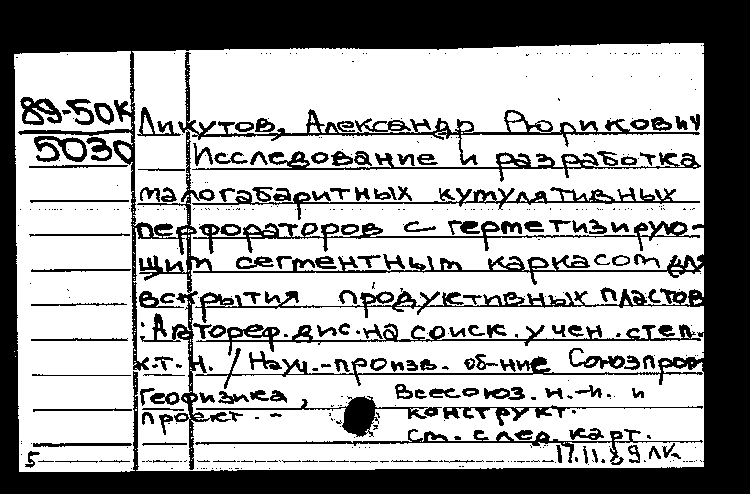 89-50к
5030
Ликутов, Александр Рюрикович
Исследование и разработка
малогабаритных кумулятивных
перфораторов с герметизирую-
щим сегментным каркасом для
вскрытия продуктивных пластов
: Автореф. дис. на соиск. учен. степ.
к.т.н. / Науч.-произв. об-ние Союзпром
геофизика, Всесоюз. н.-и. и
проект.- конструкт.
см. след. карт.
5 17.11.89 ЛК